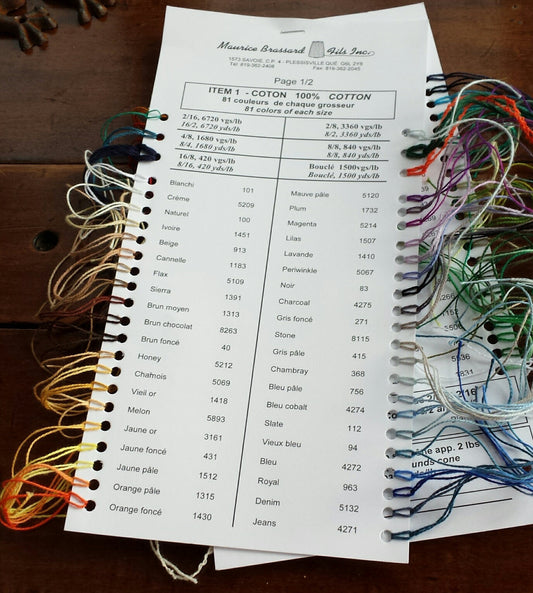 Maurice Brassard Fils Inc.
1573 SAVOIE, C.P. 4 - PLESSISVILLE QUÉ. G6L 2Y6
Tél: 819-362-2408 Fax: 819-362-2045
Page 1/2
ITEM 1 - COTON 100% COTTON
81 couleurs de chaque grosseur
81 colors of each size
2/16, 6720 vgs/lb 2/8, 3360 vgs/lb
16/2, 6720 yds/lb 8/2, 3360 yds/lb
4/8, 1680 vgs/lb 8/8, 840 vgs/lb
8/4, 1680 yds/lb 8/8, 840 yds/lb
16/8, 420 vgs/lb Bouclé 1500vgs/lb
8/16, 420 yds/lb Bouclé, 1500yds/lb
Blanchi 101 Mauve pâle 5120
Crème 5209 Plum 1732
Naturel 100 Magenta 5214
Ivoire 1451 Lilas 1507
Beige 913 Lavande 1410
Cannelle 1183 Periwinkle 5067
Flax 5109 Noir 83
Sierra 1391 Charcoal 4275
Brun moyen 1313 Gris foncé 271
Brun chocolat 8263 Stone 8115
Brun foncé 40 Gris pâle 415
Honey 5212 Chambray 368
Chamois 5069 Bleu pâle 756
Vieil or 1418 Bleu cobalt 4274
Melon 5893 Slate 112
Jaune or 3161 Vieux bleu 94
Jaune foncé 431 Bleu 4272
Jaune pâle 1512 Royal 963
Orange pâle 1315 Denim 5132
Orange foncé 1430 Jeans 4271
39
5266
152
5506
5536
1831
2/16
app. 2 lbs
cone